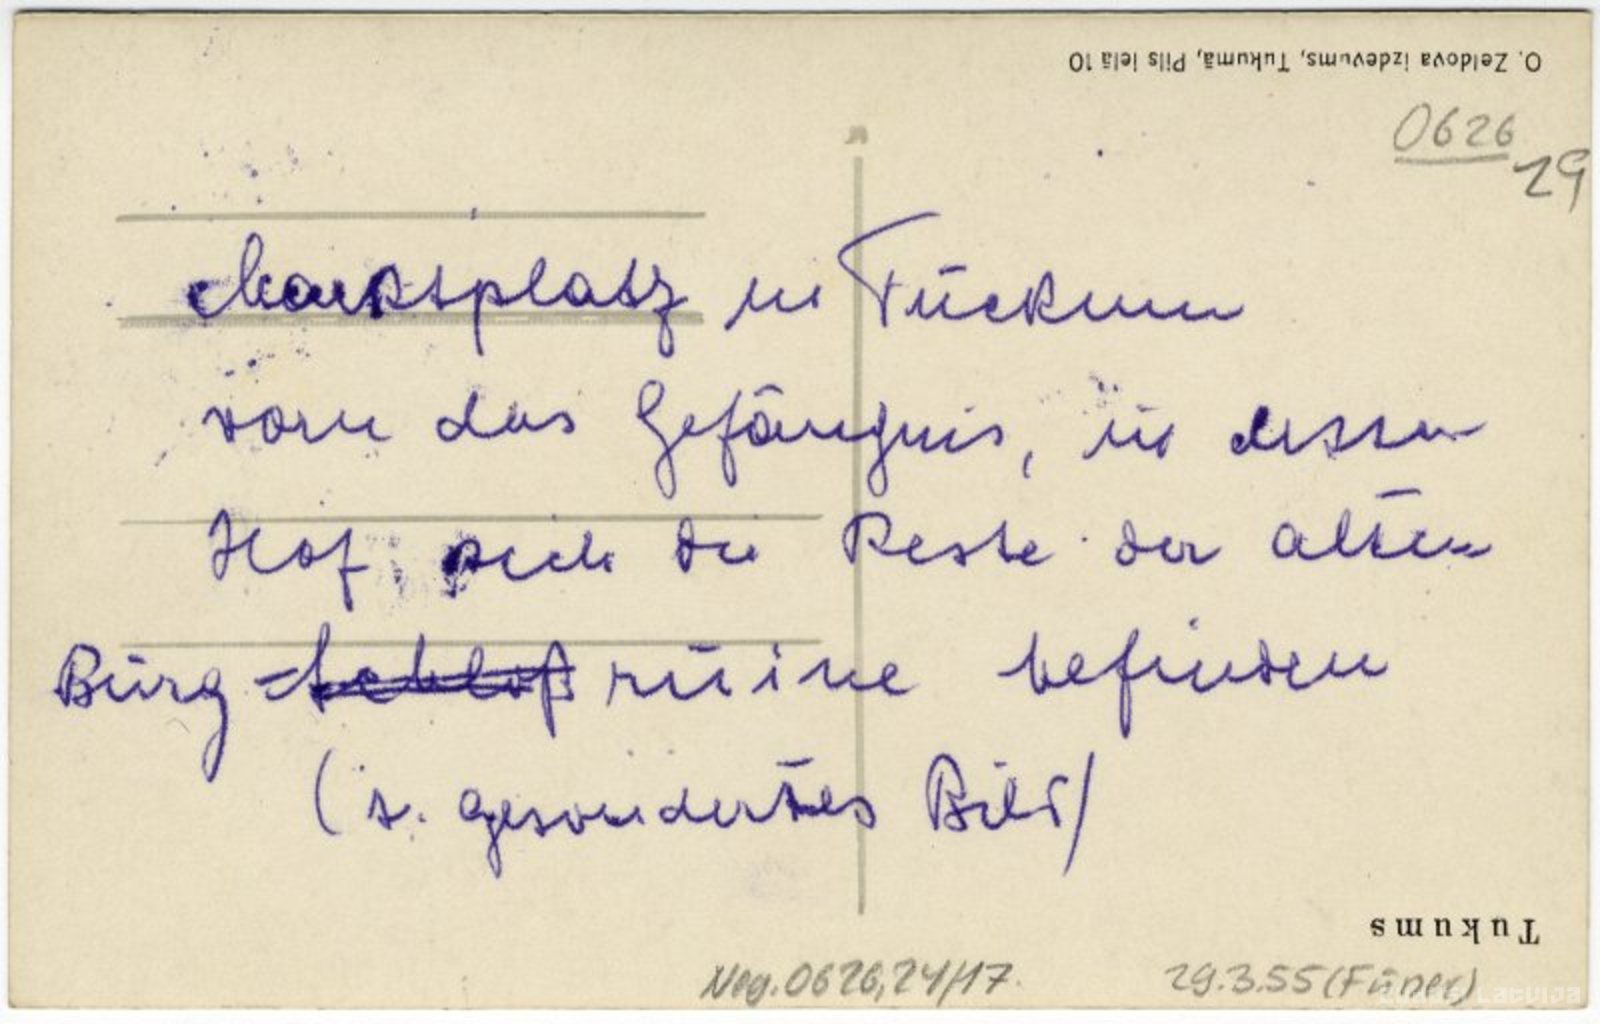 O. Zeldova izdevums, Tukumā, Pils ielā 10
0626
29
Marktplatz in Tuckum
vorn das Gefängnis, in dessen
Hof sich die Reste der alten
Burg-schloß ruine befinden
(s. gesondertes Bild)
Tukums
Neg. 0626, 24/17.
29.3.55 (Füner)